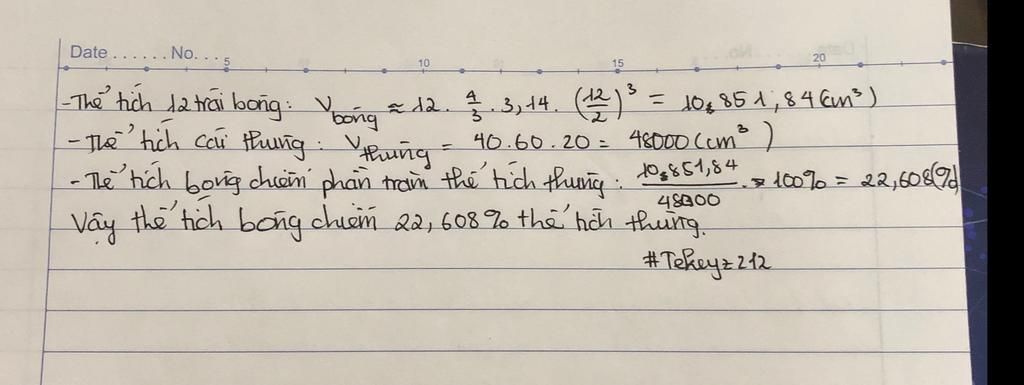 Date ...... No. ... 5 10 15 20
-Thể tích 12 trái bóng: V bóng ≈ 12 . 4/3 . 3,14 . (12/2)³ = 10.851,84 (cm³)
- Thể tích cái thùng: V thùng = 40.60.20 = 48000 (cm³)
- Thể tích bóng chiếm phần trăm thể tích thùng: 10.851,84/48000 . 100% = 22,608(%)
Vậy thể tích bóng chiếm 22,608% thể tích thùng.
#Tekeyz212